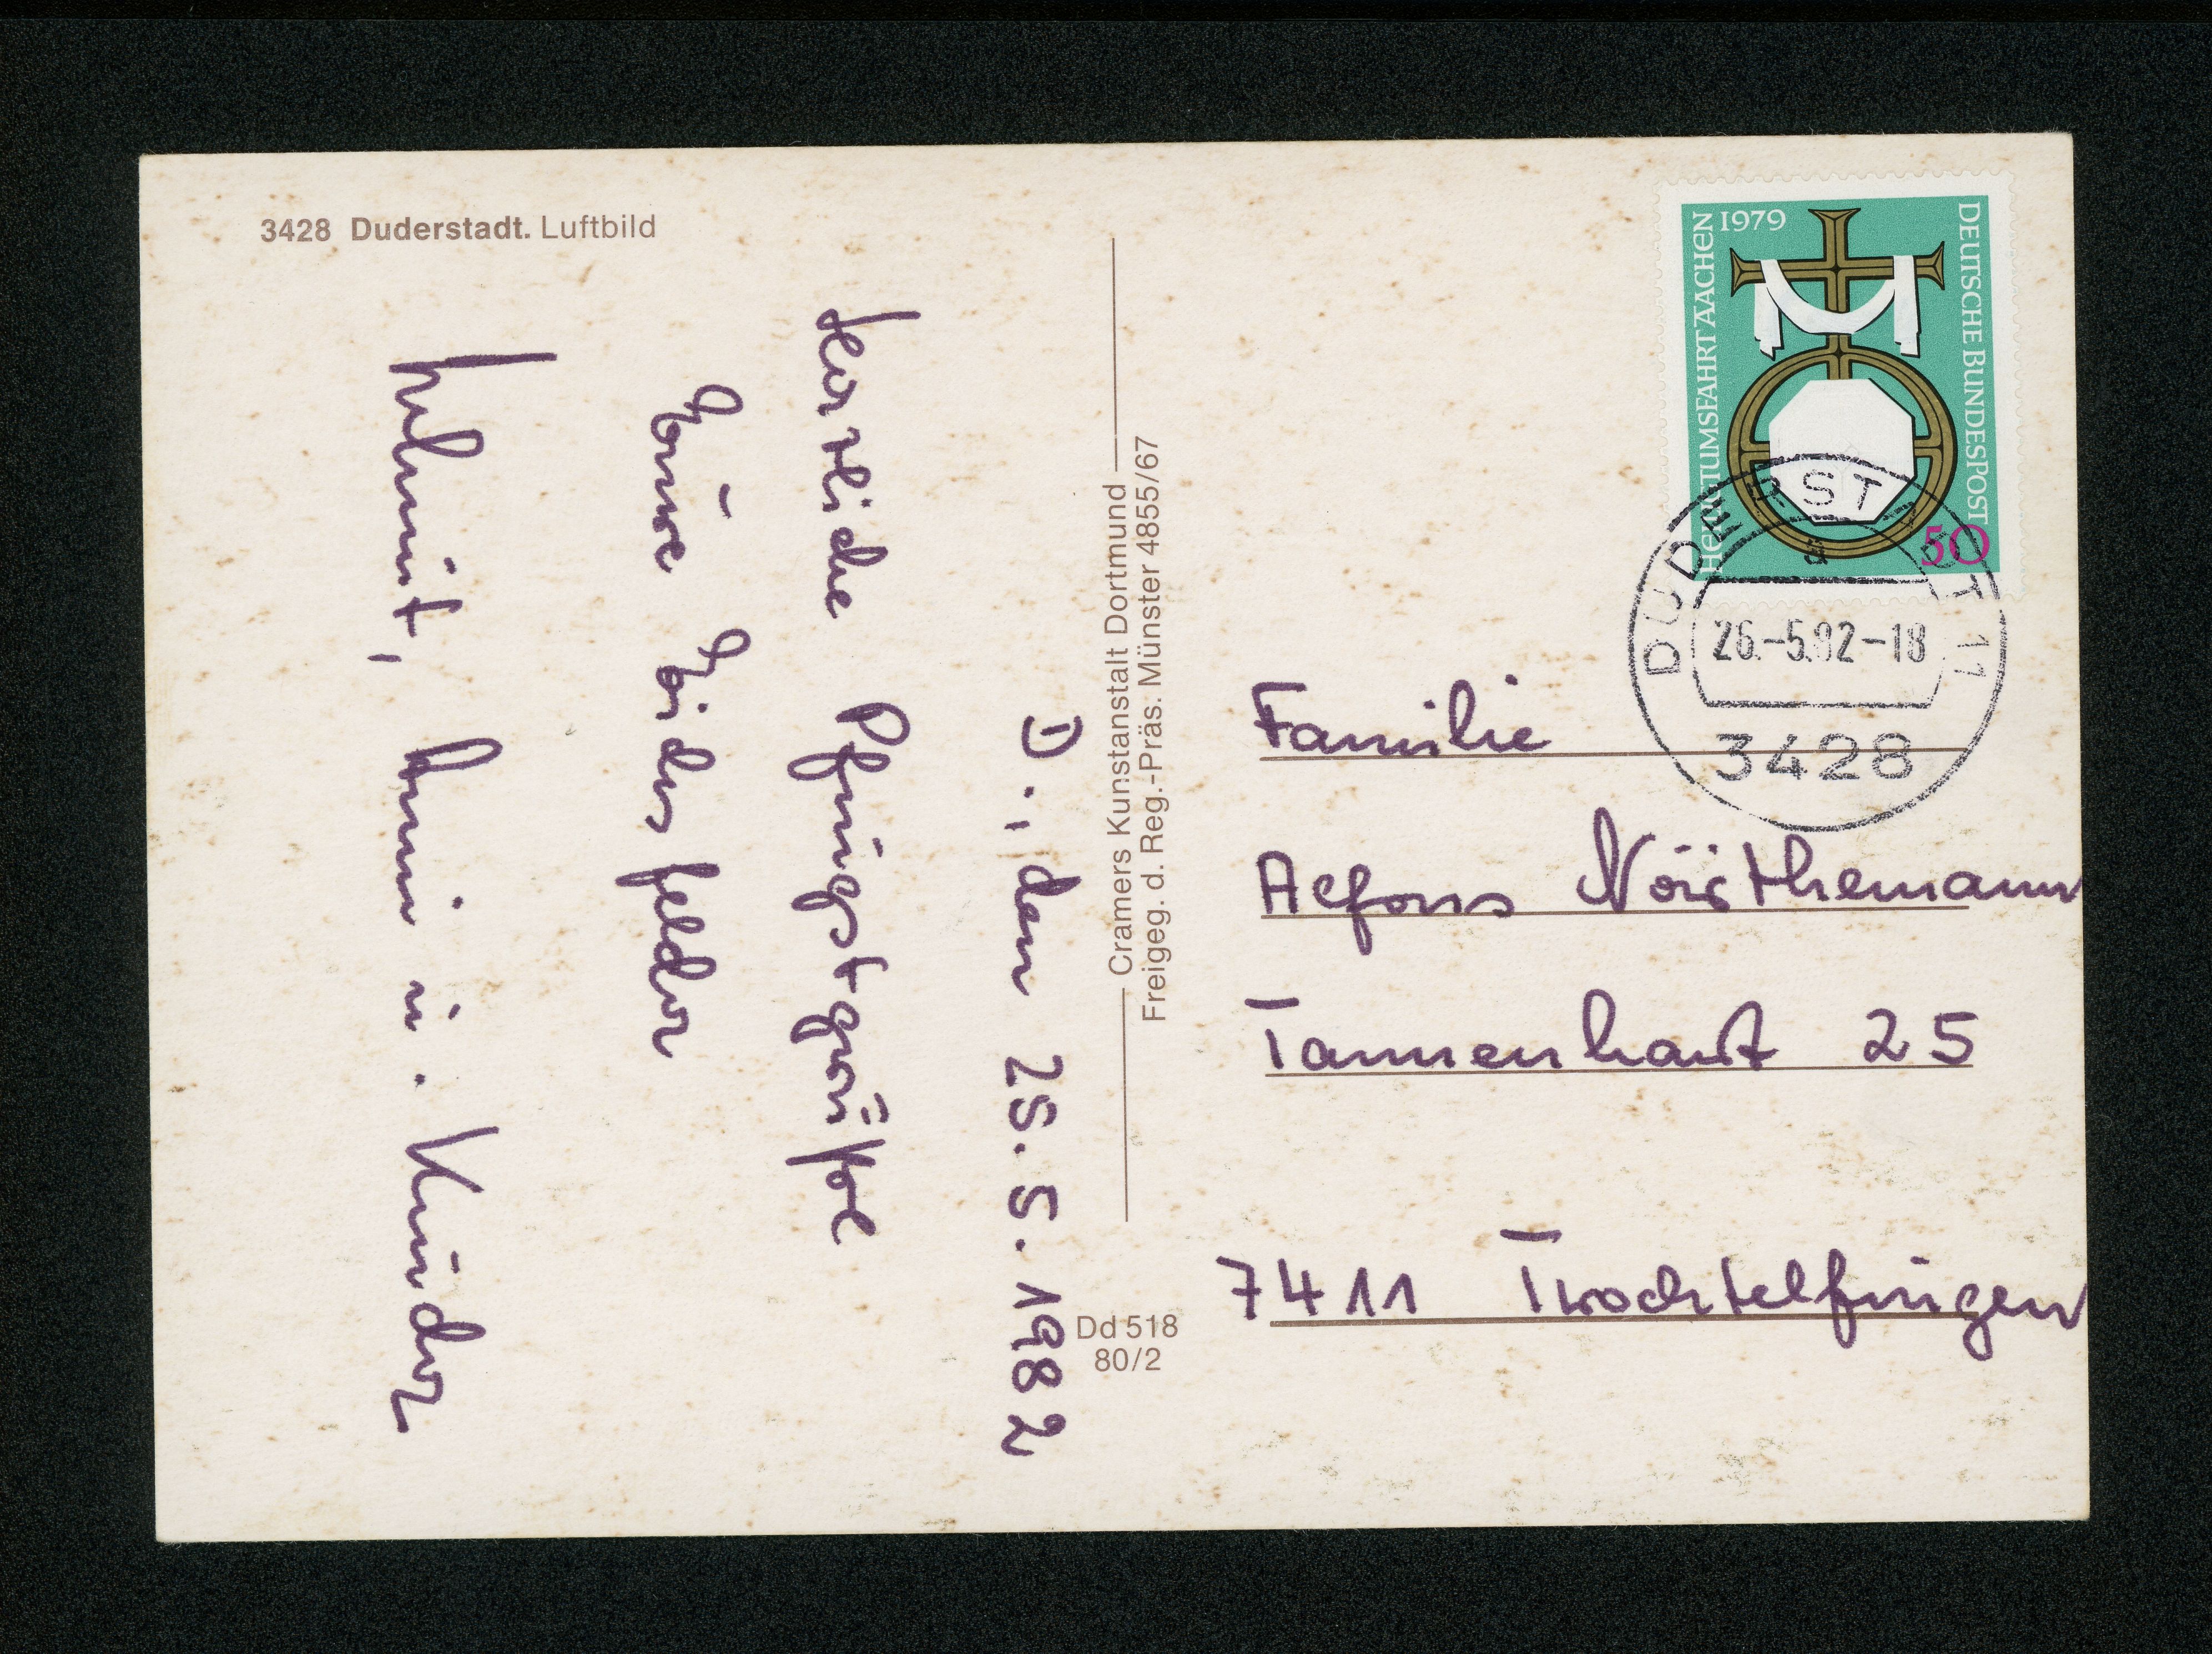 3428 Duderstadt. Luftbild
D., den 25.5.1982
Herzliche Pfingstgrüße
Eure Eidesfelder
Helmut, Anni u. Kinder
Cramers Kunstanstalt Dortmund
Freigeg. d. Reg.-Präs. Münster 4855/67
Dd 518
80/2
HEILIGTUMSFAHRT AACHEN 1979
DEUTSCHE BUNDESPOST
50
DUDERSTADT 11
a
26.-5.82-18
3428
Familie
Alfons
Tannenhart 25
7411 Trochtelfingen